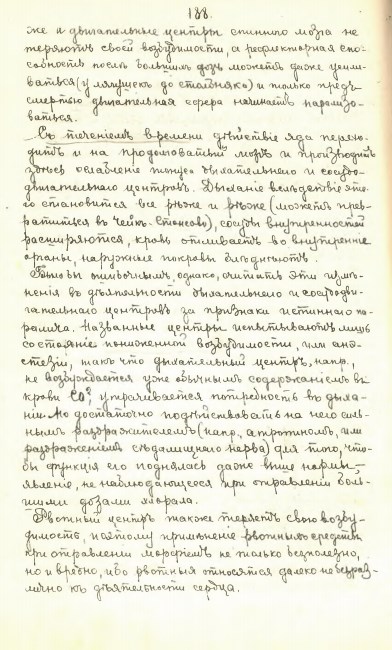 188.
же и двигательные центры спинного мозга не
теряютъ своей возбудимости, а рефлекторная спо-
собность послѣ большихъ дозъ можетъ даже усили-
ваться (у лягушекъ до столбняка) и только предъ
смертью двигательная сфера начинаетъ парализо-
ваться.
Съ теченіемъ времени дѣйствіе яда перехо-
дитъ и на продолговатый мозгъ и производитъ
здѣсь ослабленіе тонуса дыхательнаго и сосудо-
двигательнаго центровъ. Дыханіе вслѣдствіе это-
го становится все рѣже и рѣже (можетъ прев-
ратиться въ Чейн.-Стоксово), сосуды внутренностей
расширяются, кровь отливаетъ во внутренніе
органы, наружные покровы блѣднѣютъ.
Было бы ошибочнымъ, однако, считать эти измѣ-
ненія въ дѣятельности дыхательнаго и сосудодви-
гательнаго центровъ за признаки истиннаго па-
ралича. Названные центры испытываютъ лишь
состояніе пониженной возбудимости, или анэ-
стезіи, такъ что дыхательный центръ, напр.,
не возбуждается уже обычнымъ содержаніемъ въ
крови CO², утрачивается потребность въ дыха-
ніи. Но достаточно подѣйствовать на него силь-
нымъ раздражителемъ (напр., атропиномъ, или
раздраженіемъ сѣдалищнаго нерва) для того, что-
бы функція его поднялась даже выше нормы, –
явленіе, не наблюдающееся при отравленіи боль-
шими дозами хлорала.
Рвотный центръ также теряетъ свою возбу-
димость, поэтому примѣненіе рвотныхъ средствъ
при отравленіи морфіемъ не только безполезно,
но и вредно, ибо рвотныя относятся далеко не безраз-
лично къ дѣятельности сердца.